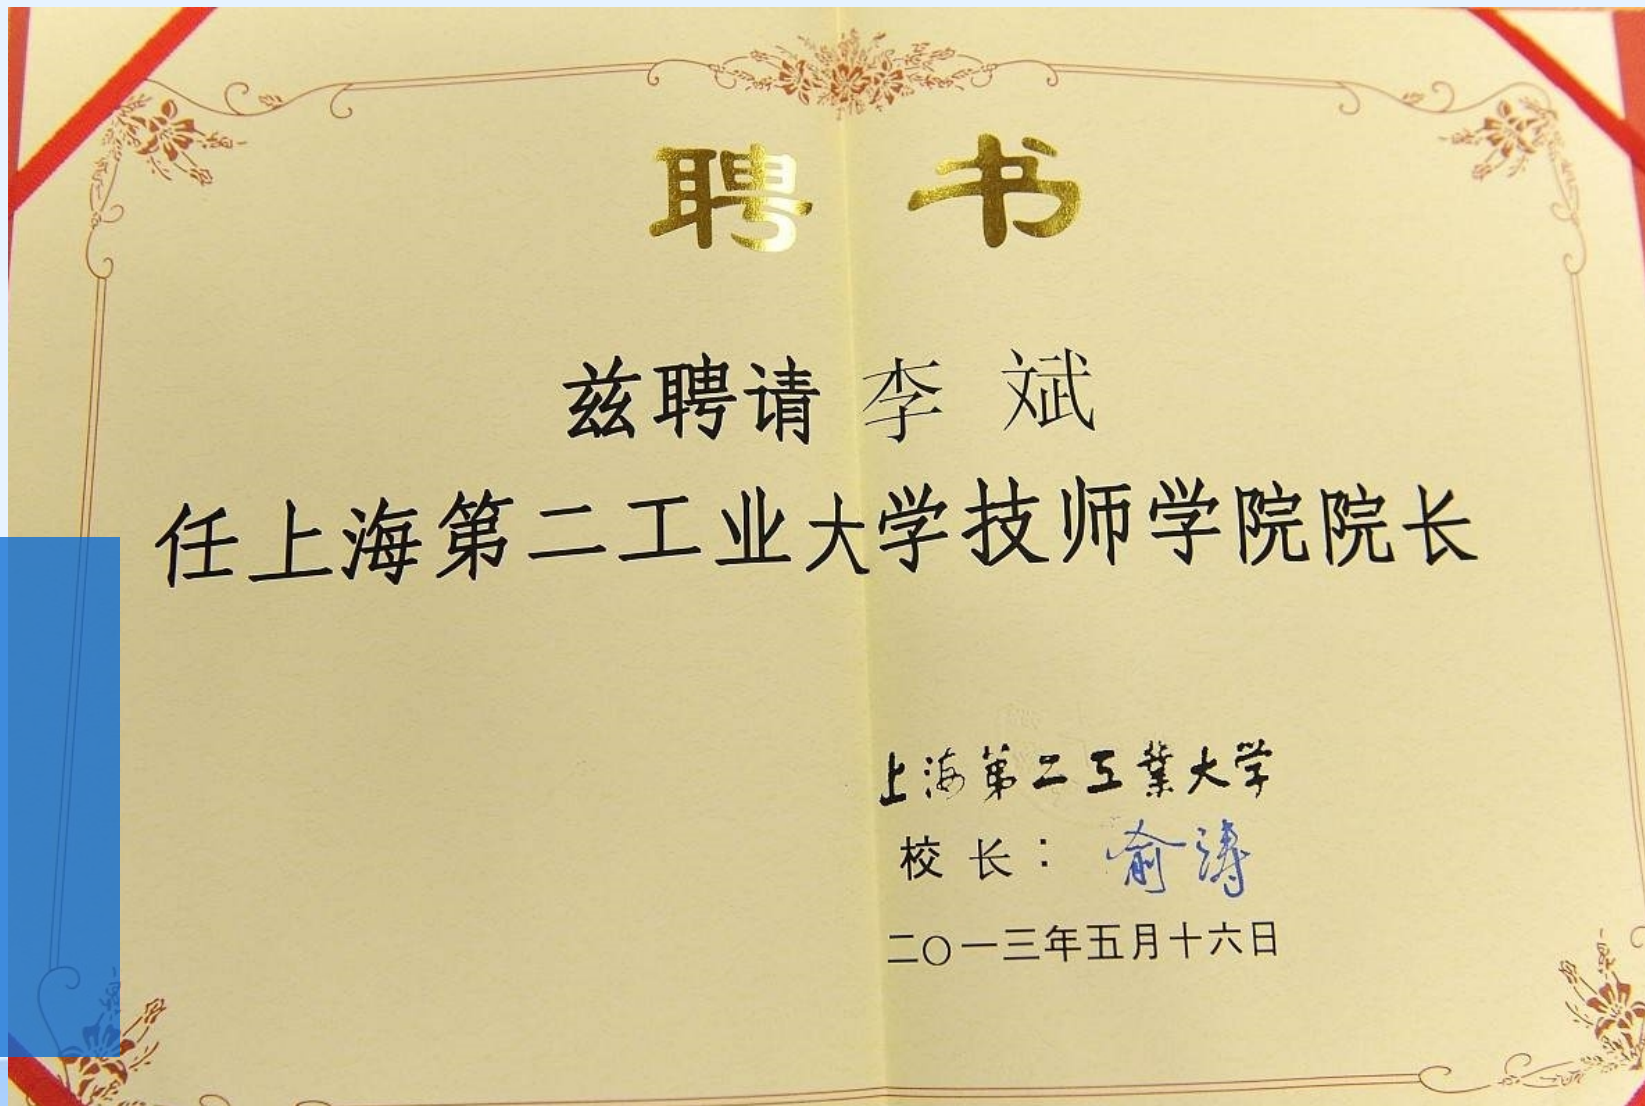 聘书
兹聘请 李 斌
任上海第二工业大学技师学院院长
上海第二工業大学
校 长： 俞涛
二〇一三年五月十六日